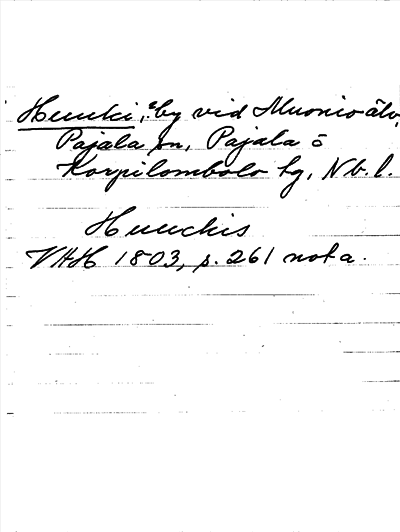 Huuki, by vid Muonio älv,
Pajala sn, Pajala o
Korpilombolo tg, Nb. l.
Huuckis
VHH 1803, p. 261 nota.